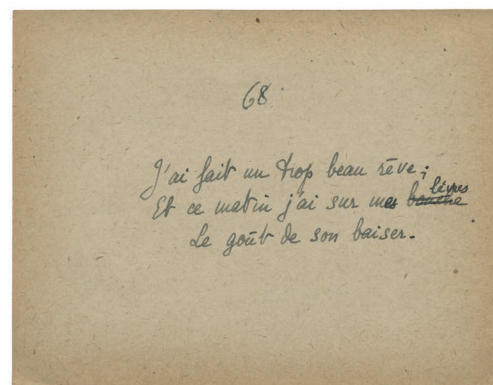 68
J'ai fait un trop beau rêve;
Et ce matin j'ai sur mes bouche lèvres
Le goût de son baiser.